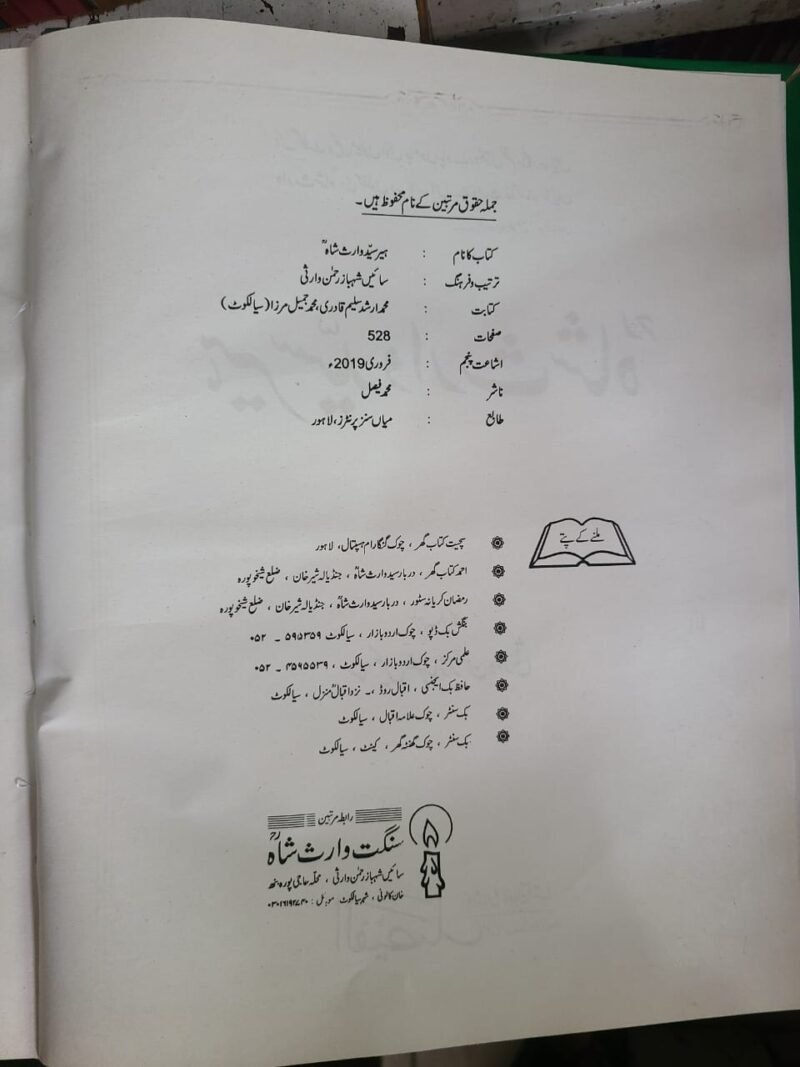 جملہ حقوق مرتبین کے نام محفوظ ہیں۔
کتاب کا نام : ہیر سیّد وارث شاہؒ
ترتیب و فرہنگ : سائیں شہباز رحمٰن وارثی
کتابت : محمد ارشد سلیم قادری، محمد جمیل مرزا (سیالکوٹ)
صفحات : 528
اشاعت پنجم : فروری 2019ء
ناشر : محمد فیصل
طابع : میاں سنز پرنٹرز، لاہور
ملنے کے پتے
سچیت کتاب گھر ، چوک گنگا رام ہسپتال، لاہور
احمد کتاب گھر ، دربار سید وارث شاہؒ ، جنڈیالہ شیر خان ، ضلع شیخوپورہ
رمضان کریانہ سٹور ، دربار سید وارث شاہؒ ، جنڈیالہ شیر خان ، ضلع شیخوپورہ
بنگش بک ڈپو ، چوک اردو بازار ، سیالکوٹ ۵۹۵۳۵۹ ۔ ۰۵۲
علمی مرکز ، چوک اردو بازار ، سیالکوٹ ، ۴۵۹۵۵۳۹ ۔ ۰۵۲
حافظ بک ایجنسی ، اقبال روڈ ،۔ نزد اقبالؒ منزل ، سیالکوٹ
بک سنٹر ، چوک علامہ اقبال ، سیالکوٹ
بک سنٹر ، چوک گھنٹہ گھر ، کینٹ ، سیالکوٹ
رابطہ مرتبین
سنگت وارث شاہؒ
سائیں شہباز رحمٰن وارثی ، محلہ حاجی پورہ بنھ
خان کالونی ، شہر سیالکوٹ موبائل :